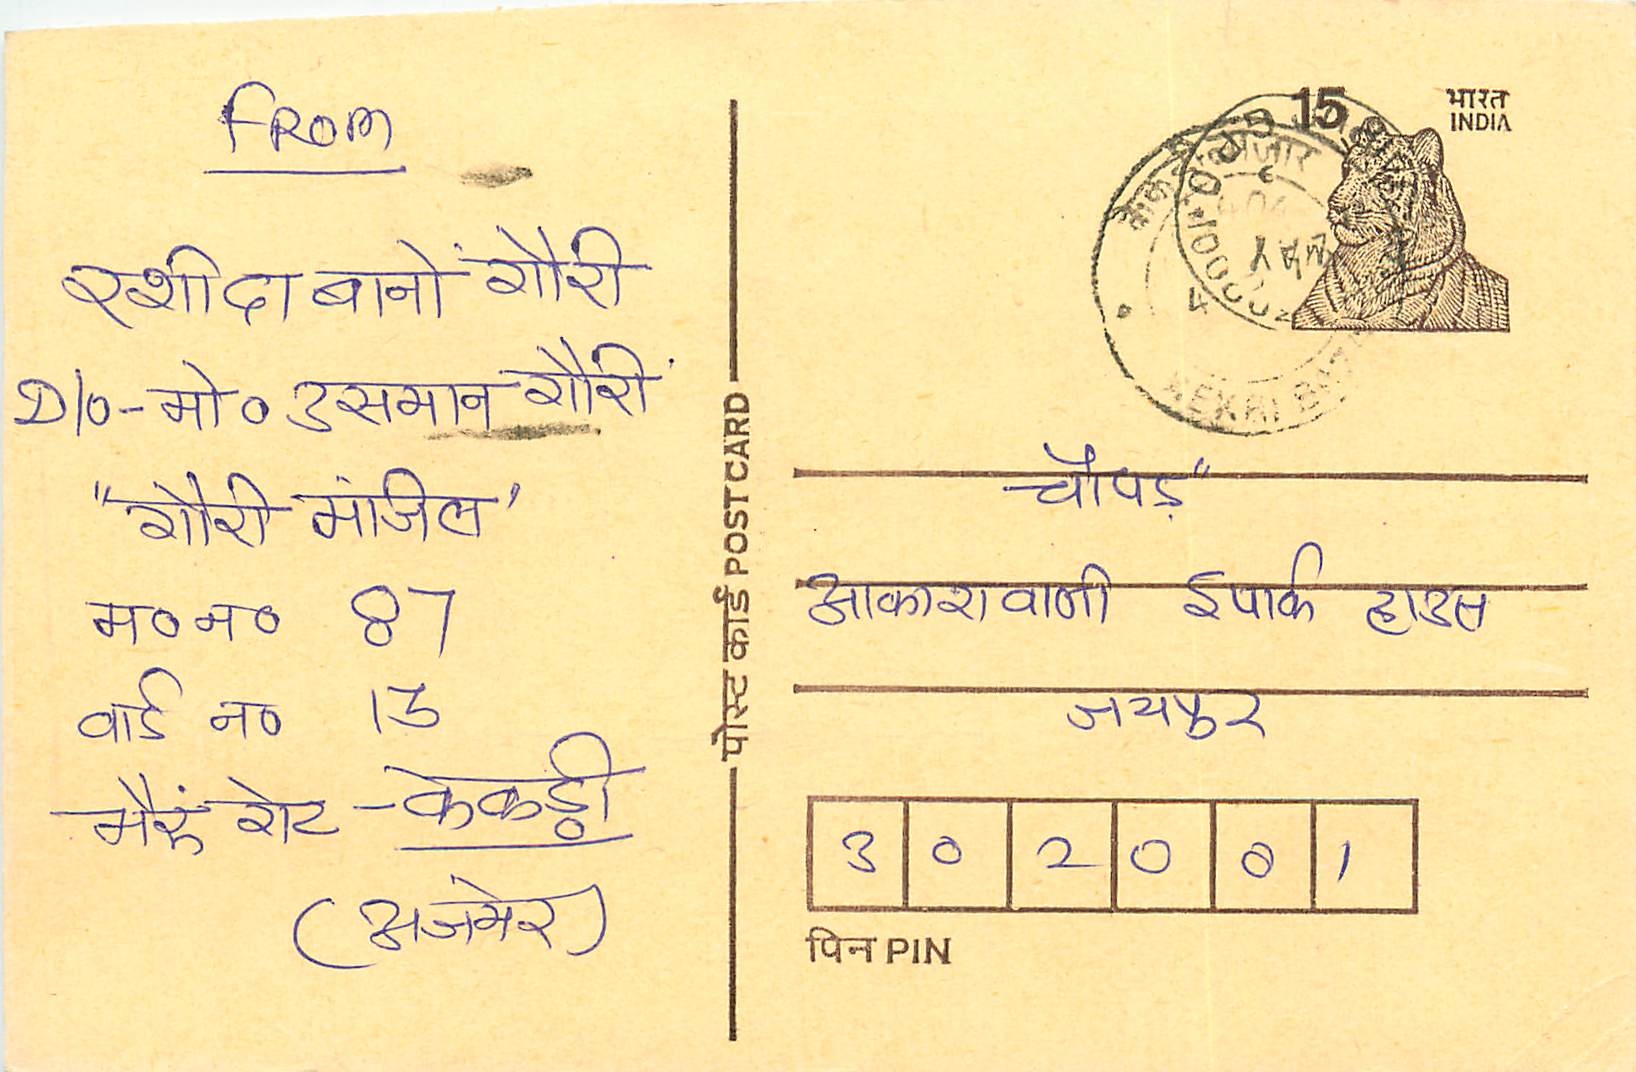 From
रशीदा बानों गौरी
D/o-मो० उसमान गौरी
"गौरी मंजिल"
म०न० 87
वार्ड न० 13
भैरूं गेट - केकड़ी
(अजमेर)
पोस्ट कार्ड POST CARD
15
भारत
INDIA
MAY
KEKRI
चौपड़"
आकाशवाणी ईपार्क हाउस
जयपुर
302001
पिन PIN